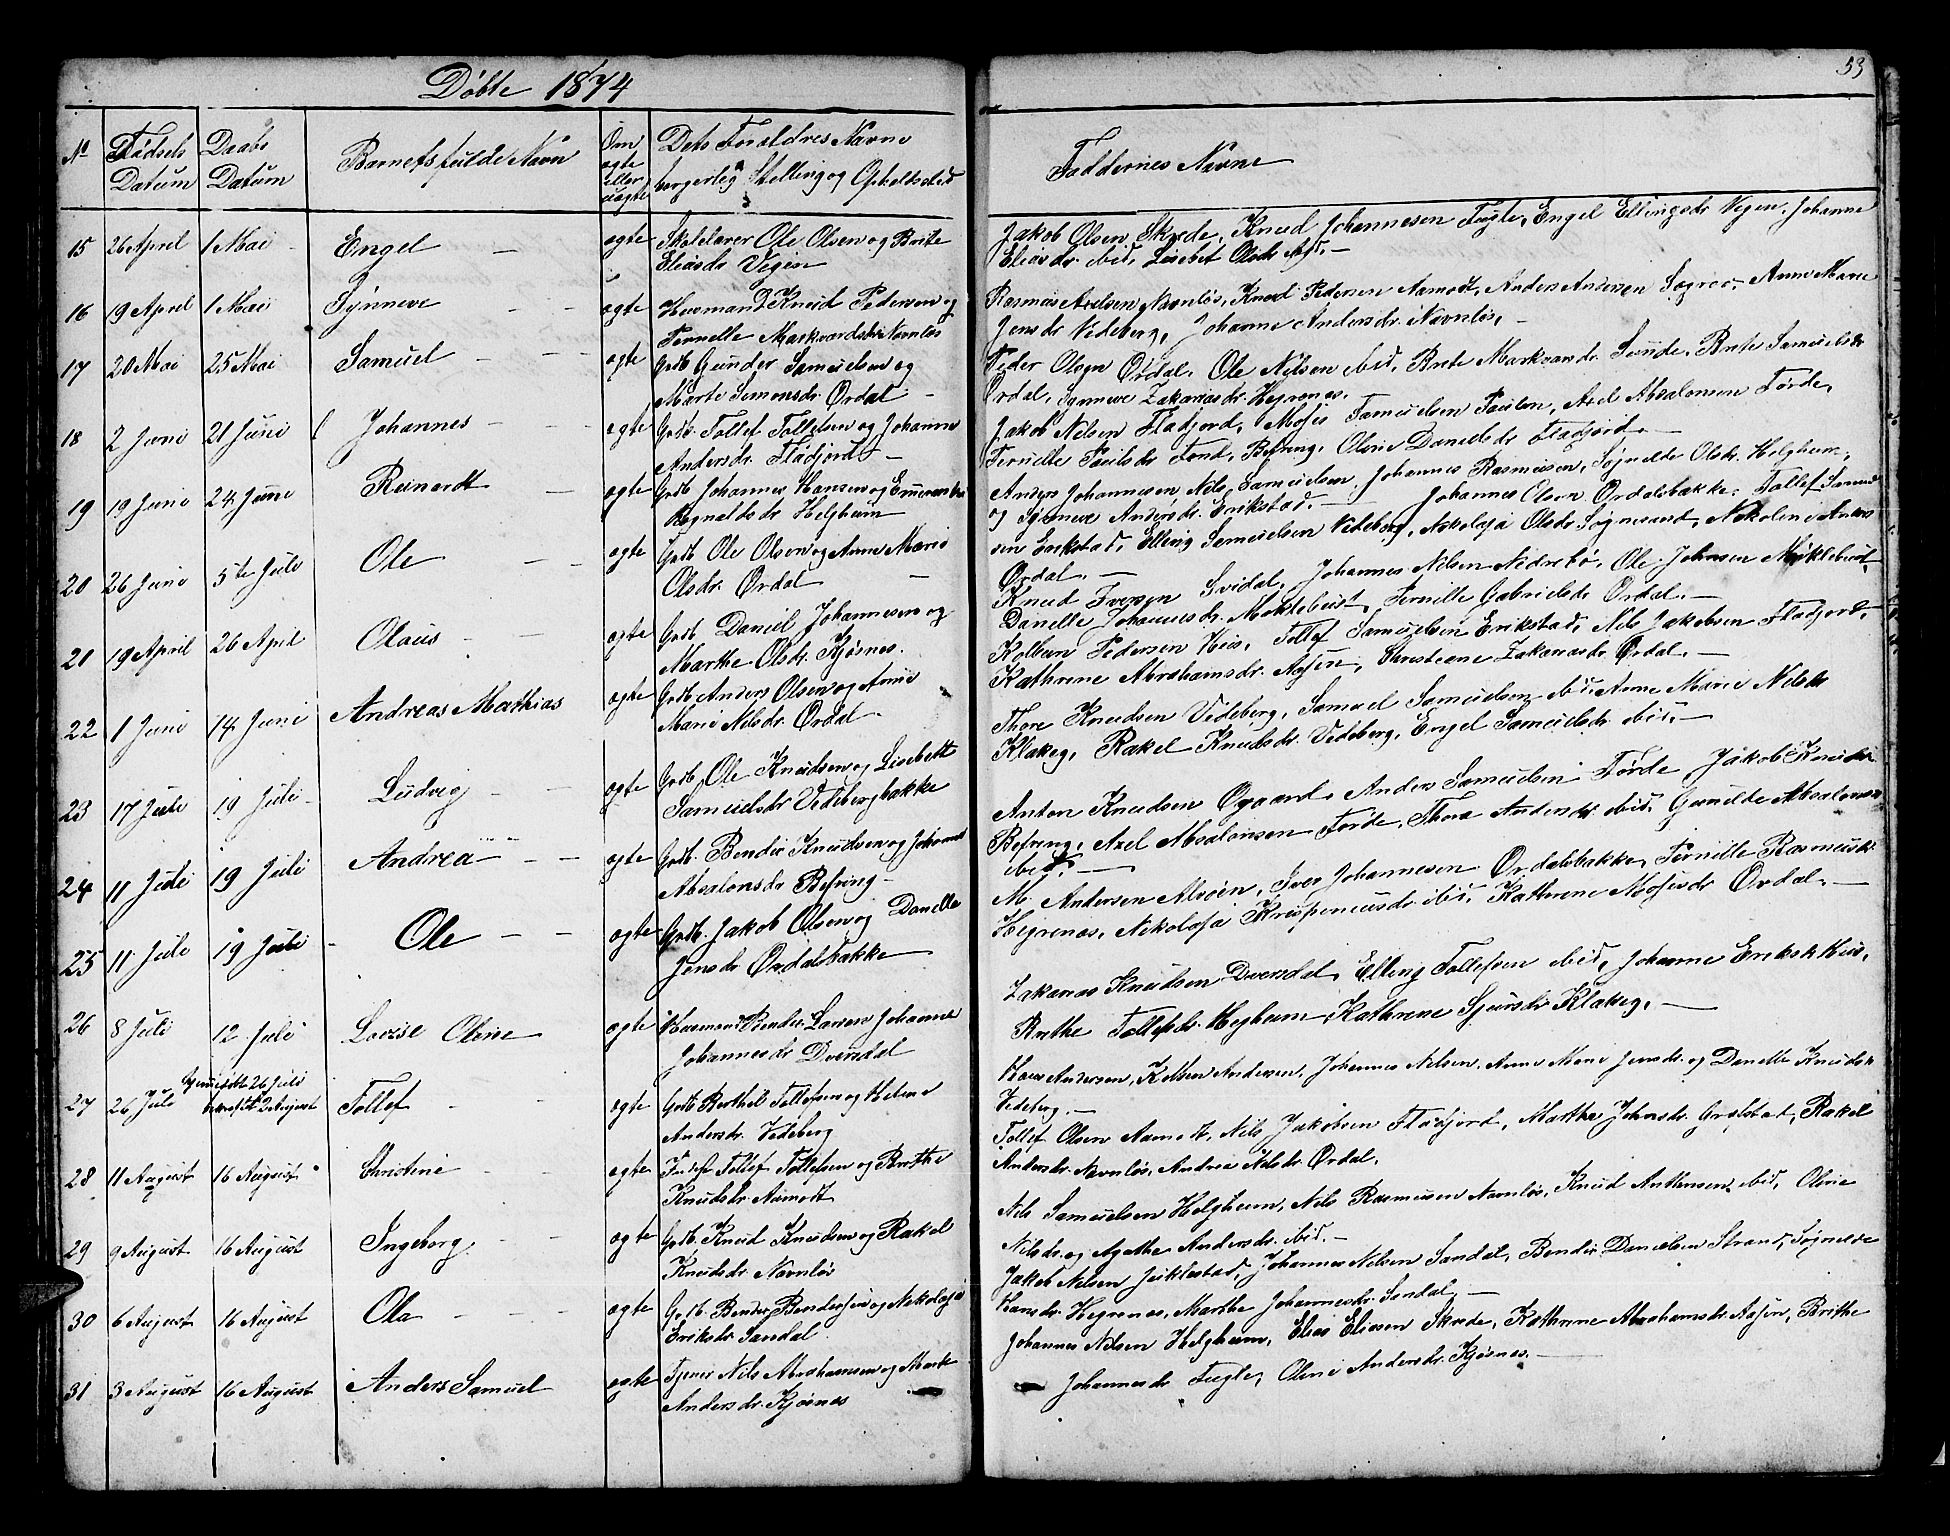 Døbte 1874
53
No
Fødsels Datum
Daabs Datum
Barnets fulde Navn
Om ægte eller uægte
Dets Forældres Navne borgerlig Stilling og Opholdssted
Faddernes Navne
15 26 April 1 Mai Engel ægte Skolelærer Ole Olsen og Brite
Eliasdr Vegen
Jakob Olsen Skrede, Knud Johannesen Fugle, Engel Ellingsdr Vegen, Johanne
Eliasdr. ibid, Lisebet Olsdr
16 19 April 1 Mai Synneve ægte Husmand Knud Pedersen og
Pernelle Markvardsdr. Navnløs
Rasmus Axelsen Navnløs, Knud Pedersen Aamodt, Anders Andersen Anne Marie
Jensdr Vedeberg, Johanne Andersdr. Navnløs,
17 20 Mai 25 Mai Samuel ægte Grdb Gunder Samuelsen og
Marte Simonsdr. Ordal
Peder Olsen Ordal, Ole Nilsen ibid, Brite Markvarsdr. Sunde, Brite Samuelsdr
Ordal, Synneve Zakariasdr. Hegrenes.
18 2 Juni 21 Juni Johannes ægte Grdb. Tollef Tollefsen og Johanne
Andersdr. Fladjord
Jakob Nilsen Fladjord, Moses Samuelsen Paulen, Axel Absalonsen Førde,
Pernille Paulsdr Befring, Oline Danielsdr Fladjord.
19 19 Juni 24 Juni Reinardt ægte Grdb Johannes Hansen og
Rognaldsdr Helgheim
Anders Johannesen, Nils Samuelsen, Johannes Rasmusen, Søgnelde Olsdr. Helgheim,
og Synneve Andersdr. Erikstad.
20 26 Juni 5te Juli Ole ægte Grdb Ole Olsen og Anne Marie
Olsdr. Ordal
Johannes Olsen Ordalsbakke, Tollef Samuel
sen Erikstad, Elling Samuelsen Vedeberg, Nikolaja Olsdr Søgnesand, Nikoline Anders
Ordal.
21 19 April 26 April Olaus ægte Grdb. Daniel Johannesen og
Marthe Olsdr. Kjøsnes.
Knud Iversen Svidal, Johannes Nilsen Nedrebø, Ole Johnsen Myklebust,
Danelle Johannesdr. Myklebust, Pernille Gabrielsdr Ordal.
22 1 Juni 14 Juni Andreas Mathias ægte Grdb Anders Olsen og Anne
Marie Nilsdr. Ordal
Kolbein Pedersen Hus, Tollef Samuelsen Erikstad, Nils Jakobsen Fladjord,
Kathrene Abrahamsdr. Aasen, Christiene Zakariasdr. Ordal.
23 17 Juli 19 Juli Ludvig ægte Grdb. Ole Knudsen og Lisebett
Samuelsdr Vedebergbakke
Thore Knudsen Vedeberg, Samuel Samuelsen ibid, Anne Marie Nilsdr
Klakeg, Rakel Knudsdr. Vedeberg, Engel Samuelsdr. ibid.
24 11 Juli 19 Juli Andrea ægte Grdb. Bendix Knudsen og Johanne
Absalonsdr Befring
Anton Knudsen Øgaard, Anders Samuelsen Førde, Jakob Knudsen
Befring, Axel Absalonsen Førde, Thora Andersdr. ibid. Gunilde Absalonsdr
ibid.
25 11 Juli 19 Juli Ole ægte Grdb. Jakob Olsen og Danelle
Jensdr Ordalsbakke
M. Andersen Aardal, Iver Johannesen Ordalsbakke, Pernille Rasmusdr.
Hegrenes, Nikolaja Krispenusdr. ibid. Kathrene Mosesdr Ordal.
26 8 Juli 12 Juli Lovise Oline ægte Husmand Bendix Larsen Johanne
Johannesdr Dvergsdal
Zakarias Knudsen Dvergsdal, Elling Tollefsen ibid, Johanne Eriksdr Hus,
Brithe Tollefsdr. Helgheim, Kathrene Sjursdr Klakeg.
27 26 Juli hjemmedøbt 26 Juli bekræftet 2 August Tollef ægte Grdb Berthel Tollefsen og Helene
Andersdr. Vedeberg
Hans Andersen, Kolben Andersen, Johannes Nilsen, Anne Marie Jensdr. og Danelle Knudsdr
Vedeberg.
28 11 August 16 August Christine ægte Tollef Tollefsen og Brithe
Knudsdr. Aamodt
Tollef Olsen Aamodt, Nils Jakobsen Fladjord, Marthe Johnsdr. Rakel
Andersdr. Navnløs, Andrea Nilsdr. Ordal.
29 9 August 16 August Ingeborg ægte Grdb. Knud Knudsen og Rakel
Knudsdr. Navnløs
Nils Samuelsen Helgheim, Nils Rasmusen Navnløs, Knud Anthonsen ibid, Oline
Nilsdr. og Agathe Andersdr. ibid.
30 6 August 16 August Ola ægte Grdb. Bendix Bendixsen og Nikolaja
Eriksdr. Sandal
Jakob Nilsen Johannes Nilsen Sandal, Bendix Danielsen Strand, Søgnelde
Hansdr. Hegrenes, Marthe Johannesdr. Sandal
31 3 August 16 August Anders Samuel ægte Tjener Nils Abrahamsen og Marte
Andersdr. Kjøsnes
Johannes Nilsen Helgheim, Elias Eliasen Skrede, Kathrene Abrahamsdr. Aasen, Brithe
Johannesdr Fugle, Oline Andersdr. Kjøsnes.